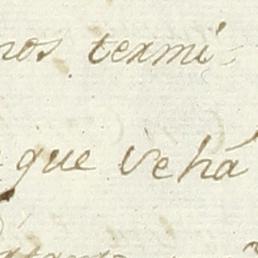 nos termi-
que se há